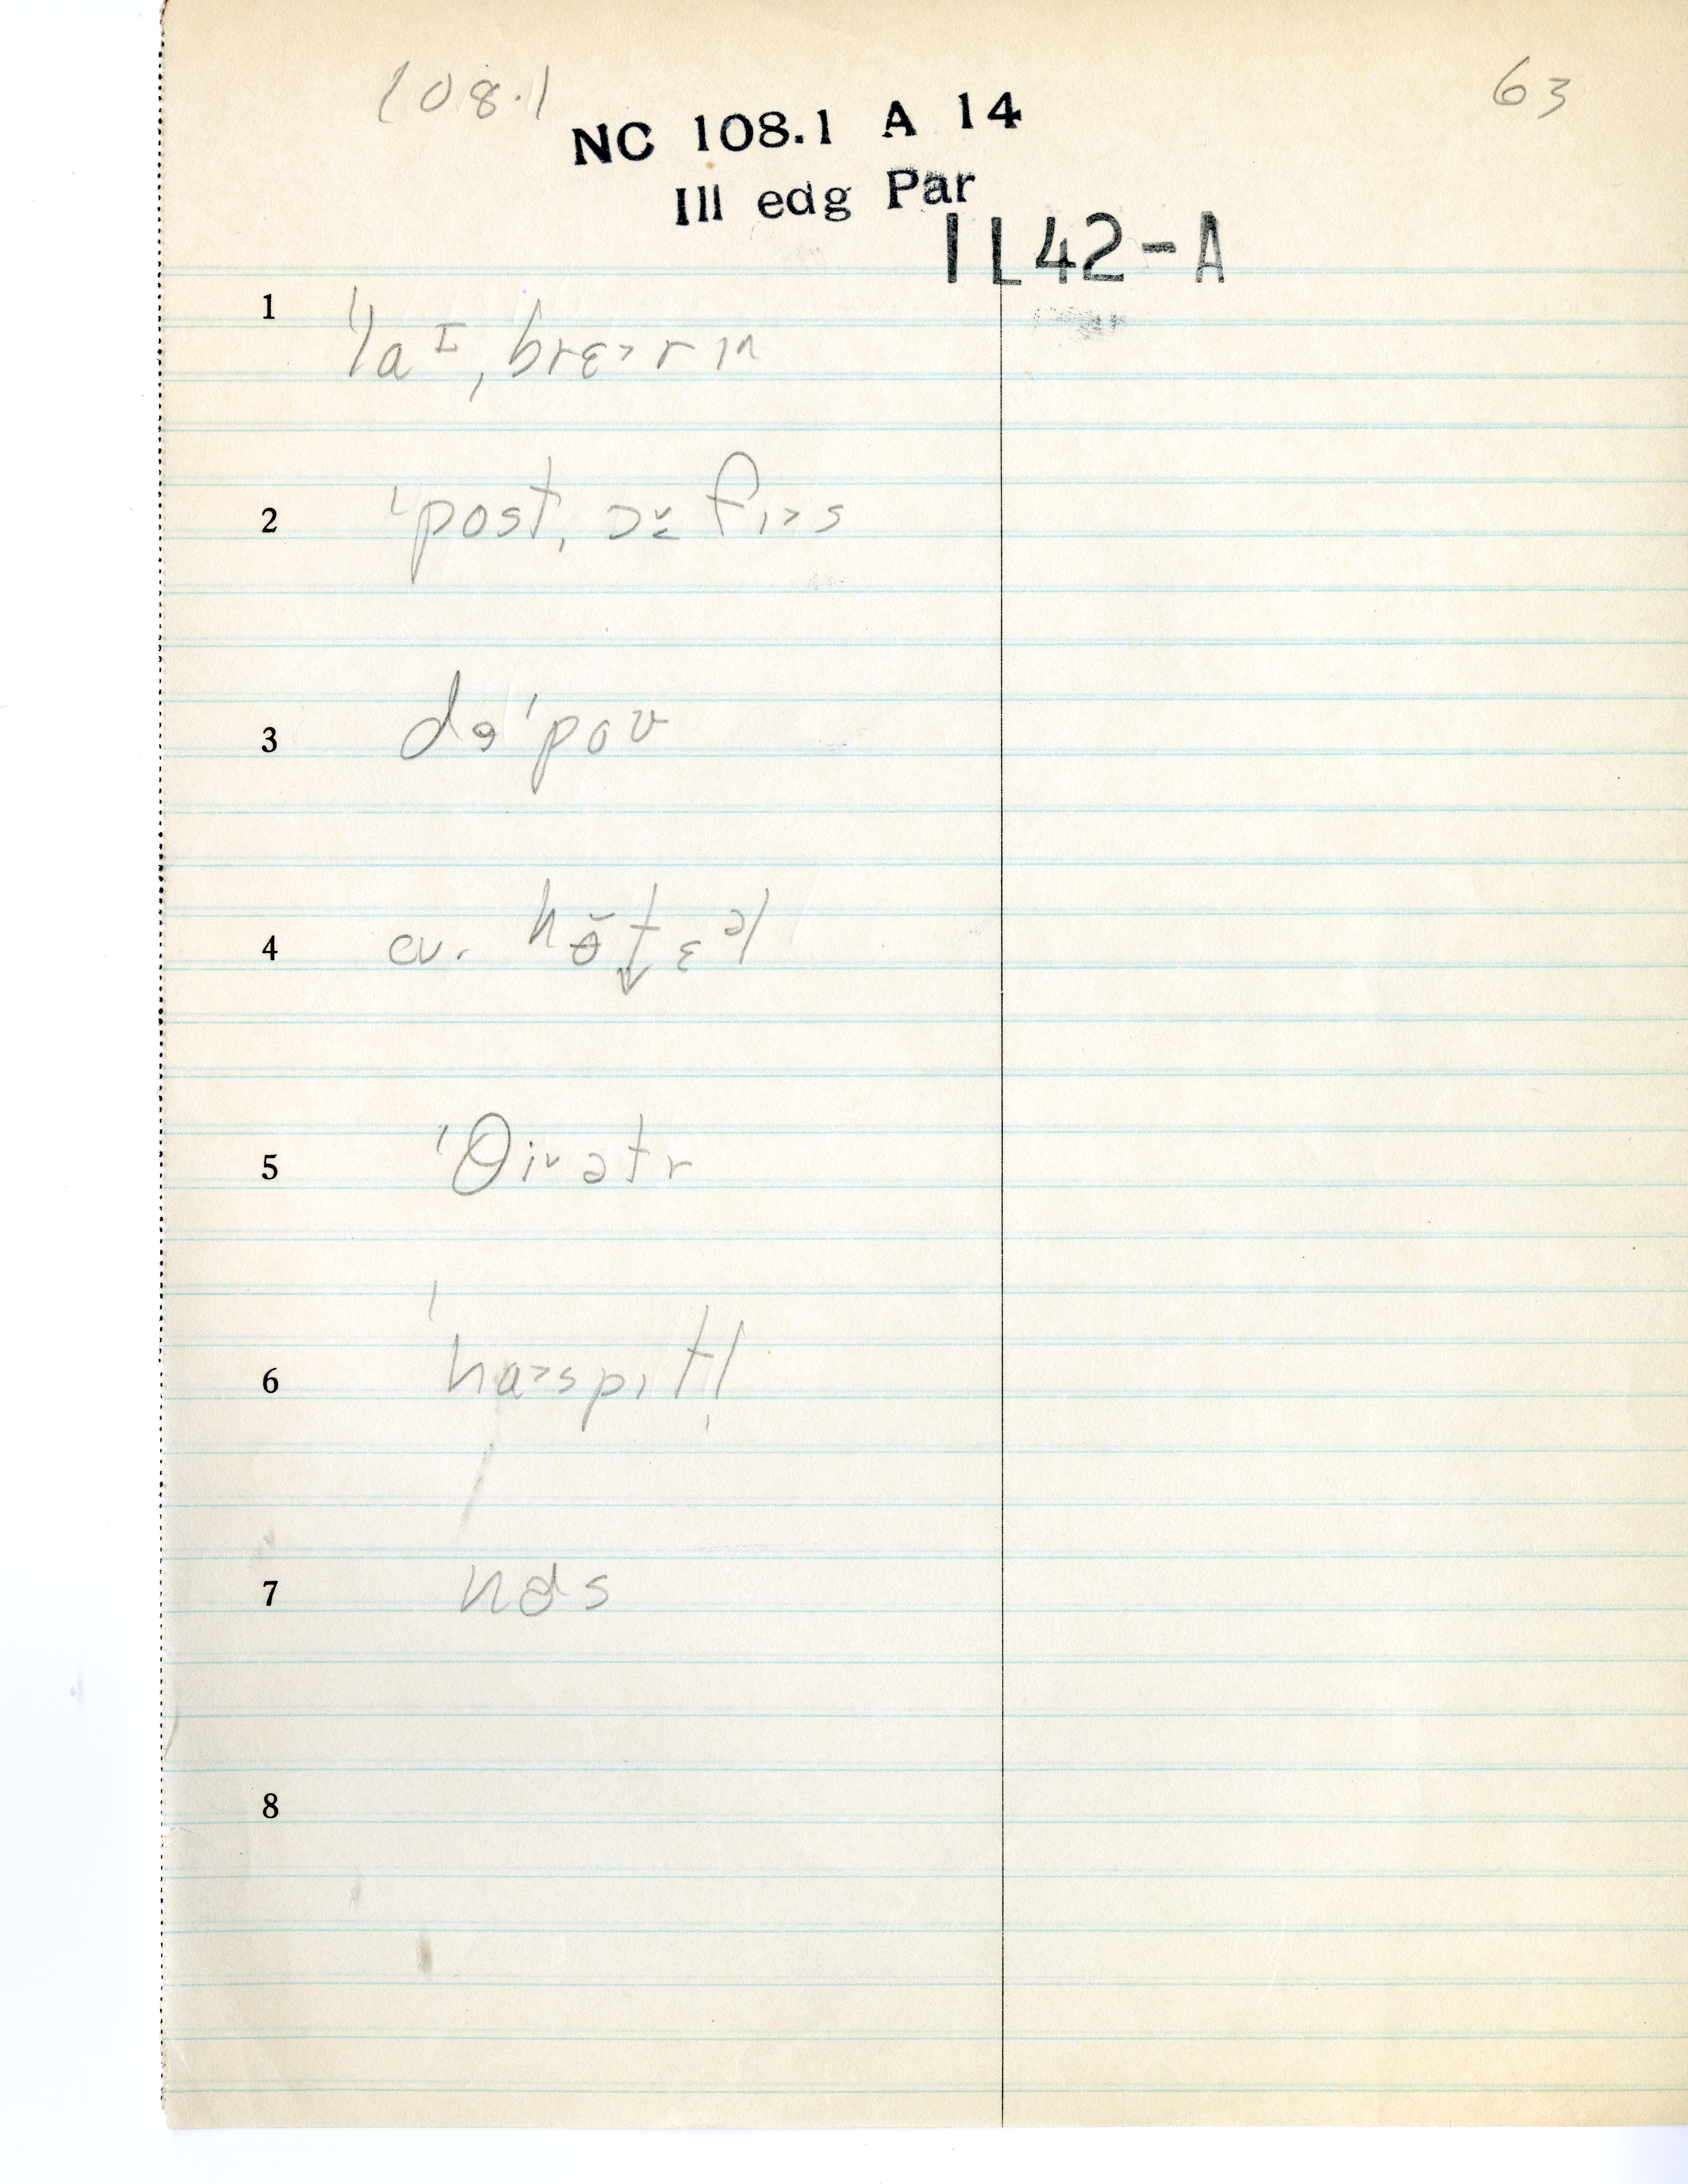 108.1
63
NC 108.1 A 14
Ill edg Par
IL42-A
1 ˈlaᴵˌbrɛ˃rɪn
2 ˈpostˌɔ̆ɛfɪ˃s
3 dəˈpoʊ
4 cv. hɵ̆t̬ɛᵊl
5 ˈθiᵛətr
6 ˈha˃spɪtl̩
7 nɚs
8